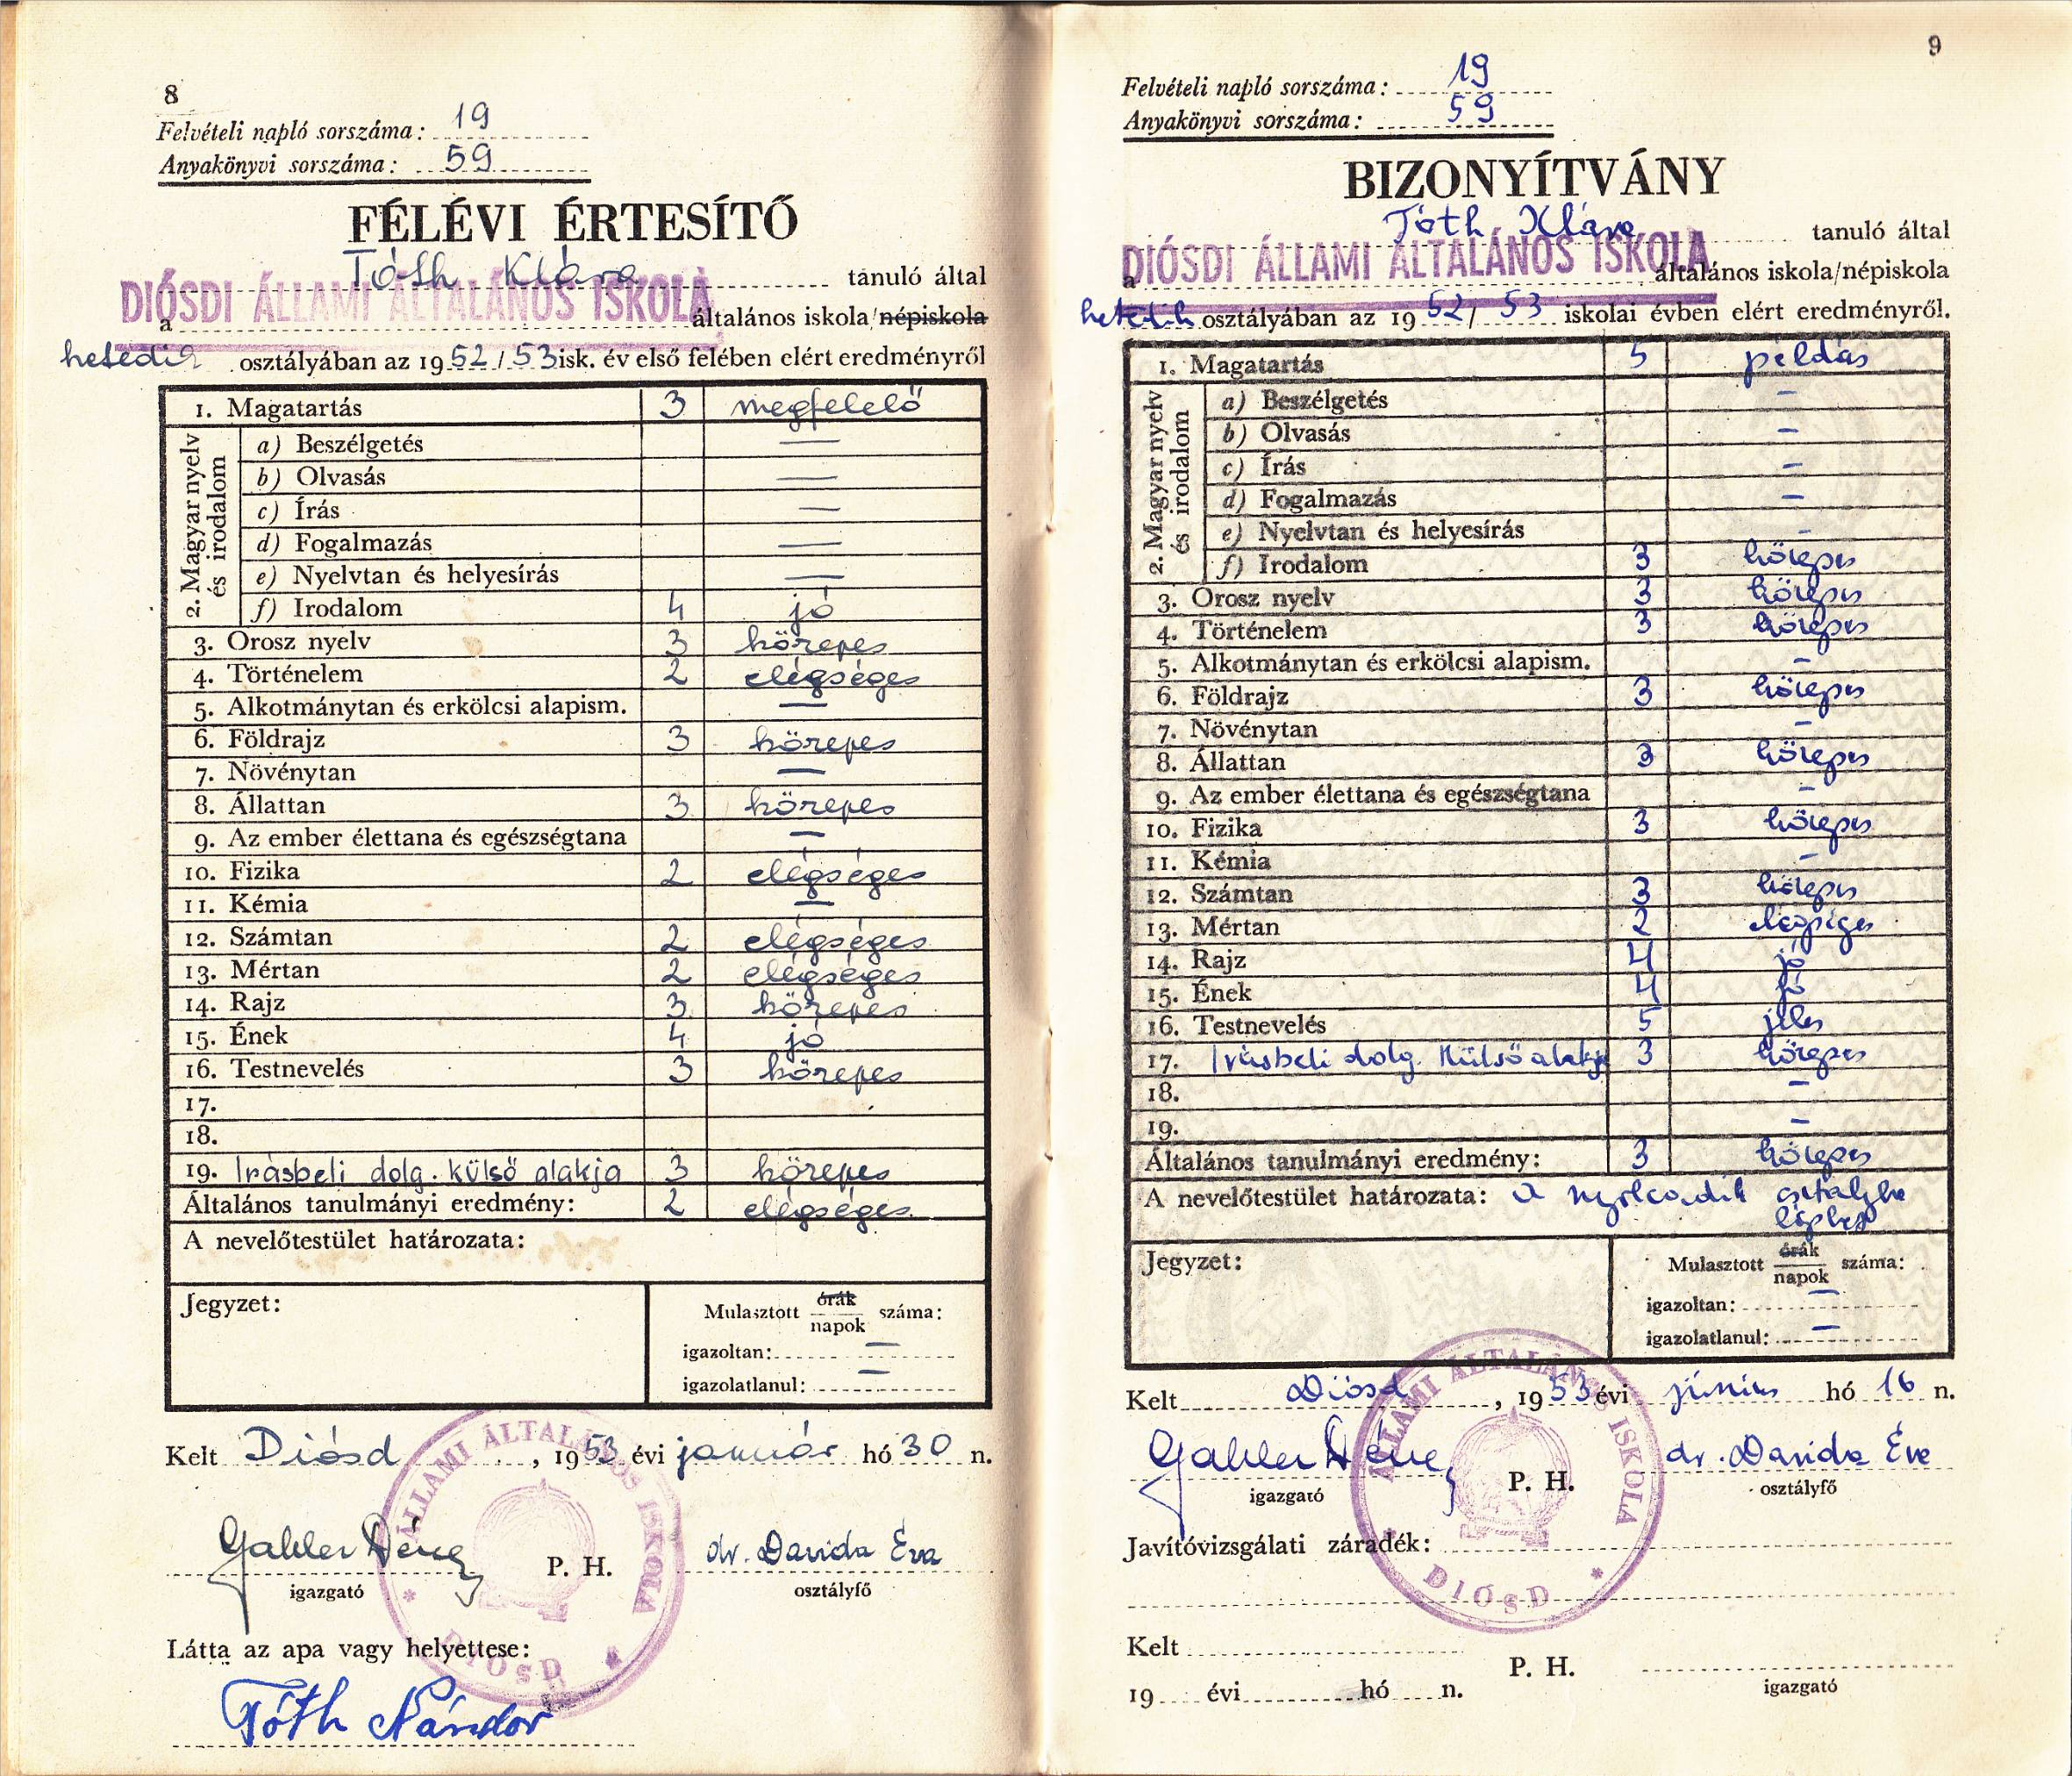 8
Felvételi napló sorszáma: 19
Anyakönyvi sorszáma: 59
FÉLÉVI ÉRTESÍTŐ
Tóth Klára tanuló által
a DIÓSDI ÁLLAMI ÁLTALÁNOS ISKOLA általános iskola/népiskola
hetedik osztályában az 1952/53 isk. év első felében elért eredményről
1. Magatartás 3 megfelelő
2. Magyar nyelv és irodalom
a) Beszélgetés —
b) Olvasás —
c) Írás —
d) Fogalmazás —
e) Nyelvtan és helyesírás —
f) Irodalom 4 jó
3. Orosz nyelv 3 közepes
4. Történelem 2 elégséges
5. Alkotmánytan és erkölcsi alapism. —
6. Földrajz 3 közepes
7. Növénytan —
8. Állattan 3 közepes
9. Az ember élettana és egészségtana —
10. Fizika 2 elégséges
11. Kémia —
12. Számtan 2 elégséges
13. Mértan 2 elégséges
14. Rajz 3 közepes
15. Ének 4 jó
16. Testnevelés 3 közepes
17.
18.
19. Irásbeli dolg. külső alakja 3 közepes
Általános tanulmányi eredmény: 2 elégséges
A nevelőtestület határozata:
Jegyzet:
Mulasztott órák/napok száma:
igazoltan: —
igazolatlanul: —
Kelt Diósd, 1953 évi január hó 30 n.
Gahler Dénes P. H. dr. Davida Éva
igazgató osztályfő
ÁLLAMI ÁLTALÁNOS ISKOLA * DIÓSD *
Látta az apa vagy helyettese:
Tóth Nándor
9
Felvételi napló sorszáma: 19
Anyakönyvi sorszáma: 59
BIZONYÍTVÁNY
Tóth Klára tanuló által
a DIÓSDI ÁLLAMI ÁLTALÁNOS ISKOLA általános iskola/népiskola
hetedik osztályában az 1952/53 iskolai évben elért eredményről.
1. Magatartás 5 példás
2. Magyar nyelv és irodalom
a) Beszélgetés –
b) Olvasás –
c) Írás –
d) Fogalmazás –
e) Nyelvtan és helyesírás –
f) Irodalom 3 közepes
3. Orosz nyelv 3 közepes
4. Történelem 3 közepes
5. Alkotmánytan és erkölcsi alapism. –
6. Földrajz 3 közepes
7. Növénytan –
8. Állattan 3 közepes
9. Az ember élettana és egészségtana –
10. Fizika 3 közepes
11. Kémia –
12. Számtan 3 közepes
13. Mértan 2 elégséges
14. Rajz 4 jó
15. Ének 4 jó
16. Testnevelés 5 jeles
17. Irásbeli dolg. külső alakja 3 közepes
18. –
19. –
Általános tanulmányi eredmény: 3 közepes
A nevelőtestület határozata: A nyolcadik osztályba
léphet
Jegyzet:
Mulasztott órák/napok száma:
igazoltan: –
igazolatlanul: –
Kelt Diósd, 1953 évi június hó 16 n.
Gahler Dénes P. H. dr. Davida Éva
igazgató osztályfő
ÁLLAMI ÁLTALÁNOS ISKOLA * DIÓSD *
Javítóvizsgálati záradék:
Kelt
P. H.
19 évi hó n. igazgató